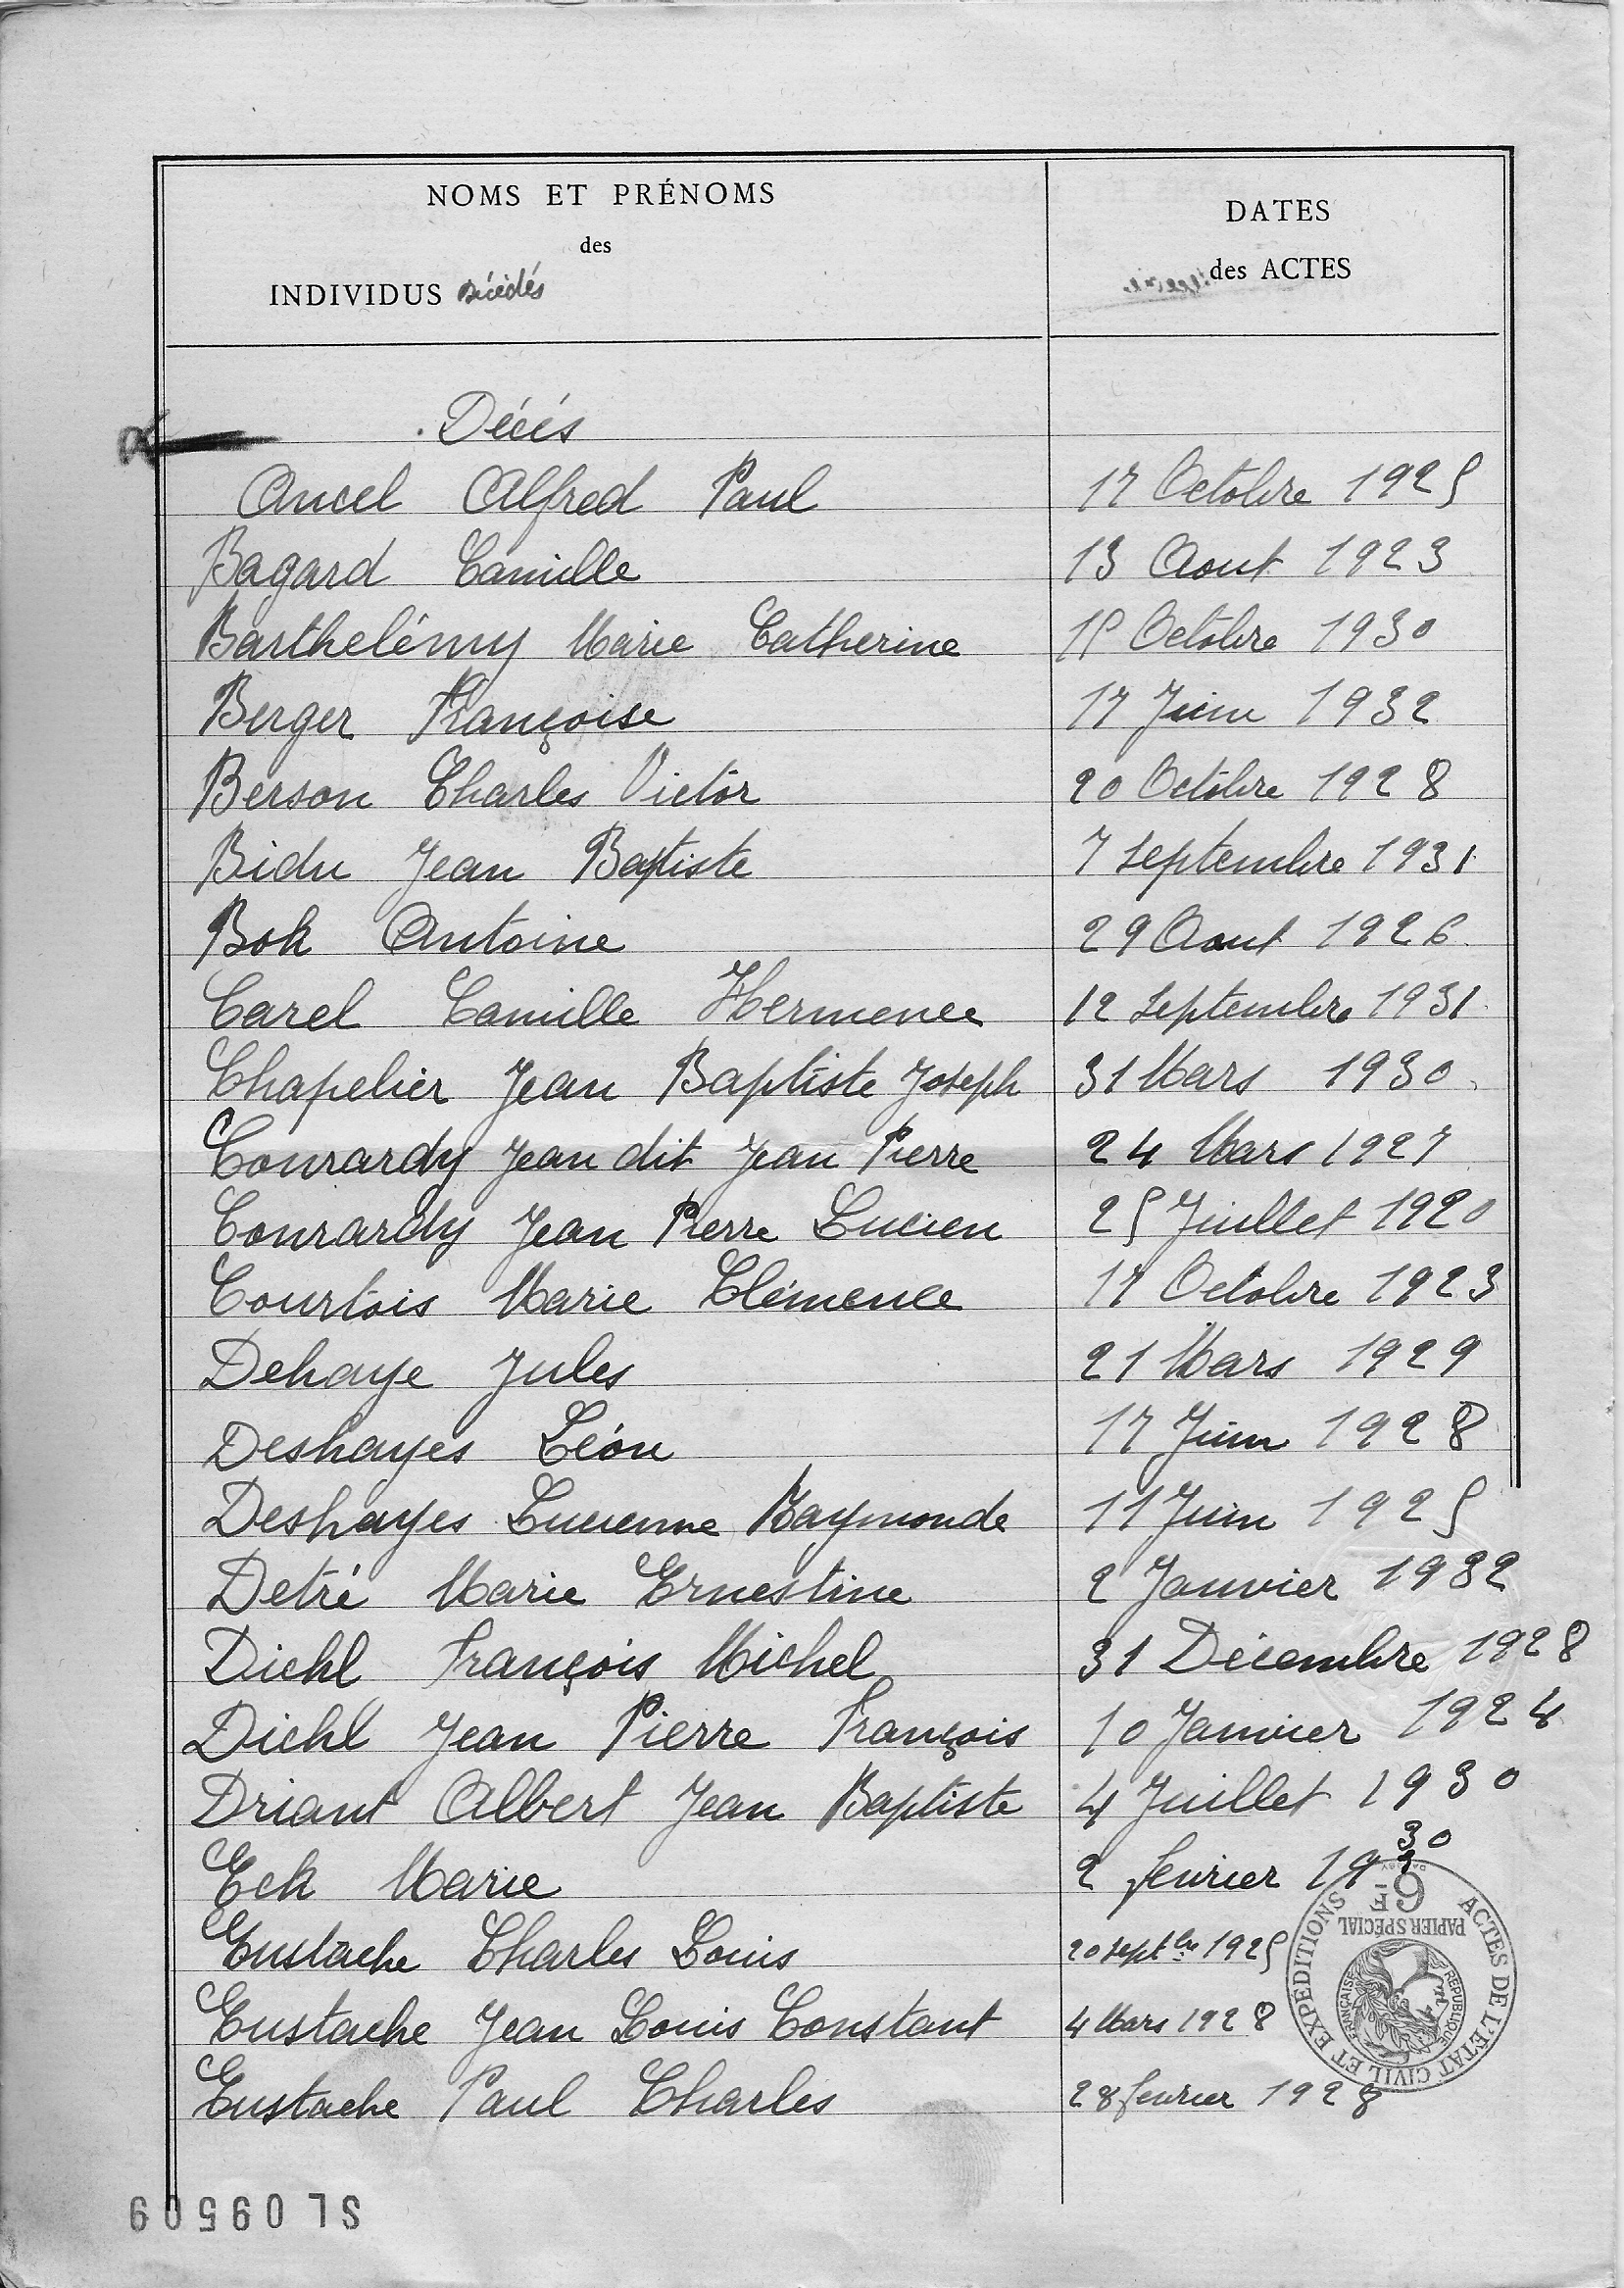 NOMS ET PRÉNOMS
des
INDIVIDUS Décédés
DATES
des ACTES
Décés
Ancel Alfred Paul 17 Octobre 1925
Bagard Camille 13 Aout 1923
Barthelémy Marie Catherine 15 Octobre 1930
Berger Françoise 17 Juin 1932
Berson Charles Victor 20 Octobre 1928
Bidu Jean Baptiste 7 Septembre 1931
Bok Antoine 29 Aout 1926
Carel Camille Hermence 12 Septembre 1931
Chapelier Jean Baptiste Joseph 31 Mars 1930
Conrardy Jean dit Jean Pierre 24 Mars 1927
Conrardy Jean Pierre Lucien 25 Juillet 1920
Courtois Marie Clémence 17 Octobre 1923
Dehaye Jules 21 Mars 1929
Deshayes Léon 17 Juin 1928
Deshayes Lucienne Raymonde 11 Juin 1925
Detré Marie Ernestine 2 Janvier 1932
Diehl François Michel 31 Décembre 1928
Diehl Jean Pierre François 10 Janvier 1924
Driant Albert Jean Baptiste 4 Juillet 1930
Eck Marie 2 fevrier 1930
Eustache Charles Louis 20 septbre 1925
Eustache Jean Louis Constant 4 Mars 1928
Eustache Paul Charles 28 fevrier 1928
ACTES DE L'ETAT CIVIL ET EXPEDITIONS
PAPIER SPÉCIAL
6F
REPUBLIQUE FRANÇAISE
SL 095909